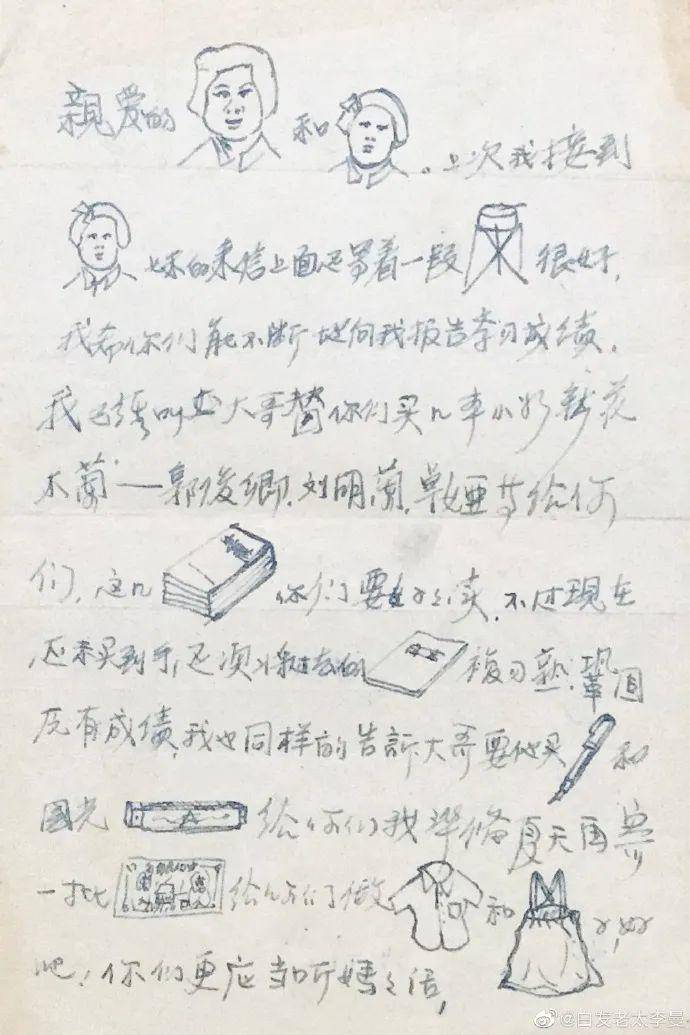 亲爱的 和 。上次我接到
妹的来信上面还写着一段 很好,
我希你们能不断地向我报告学习成绩.
我已经叫 大哥替你们买几本小
木兰——郭俊卿.刘明兰. 给你
们,这几 你们要好好读,不过现在
还未买到手,还须将过去的 複习熟.巩固
原有成绩,我也同样的告訴大哥要他买 和
国光 给你们我準俻夏天再寄
一批 给你们做 和 ,好
吧!你们更应当听妈妈话,
@白发老太李曼